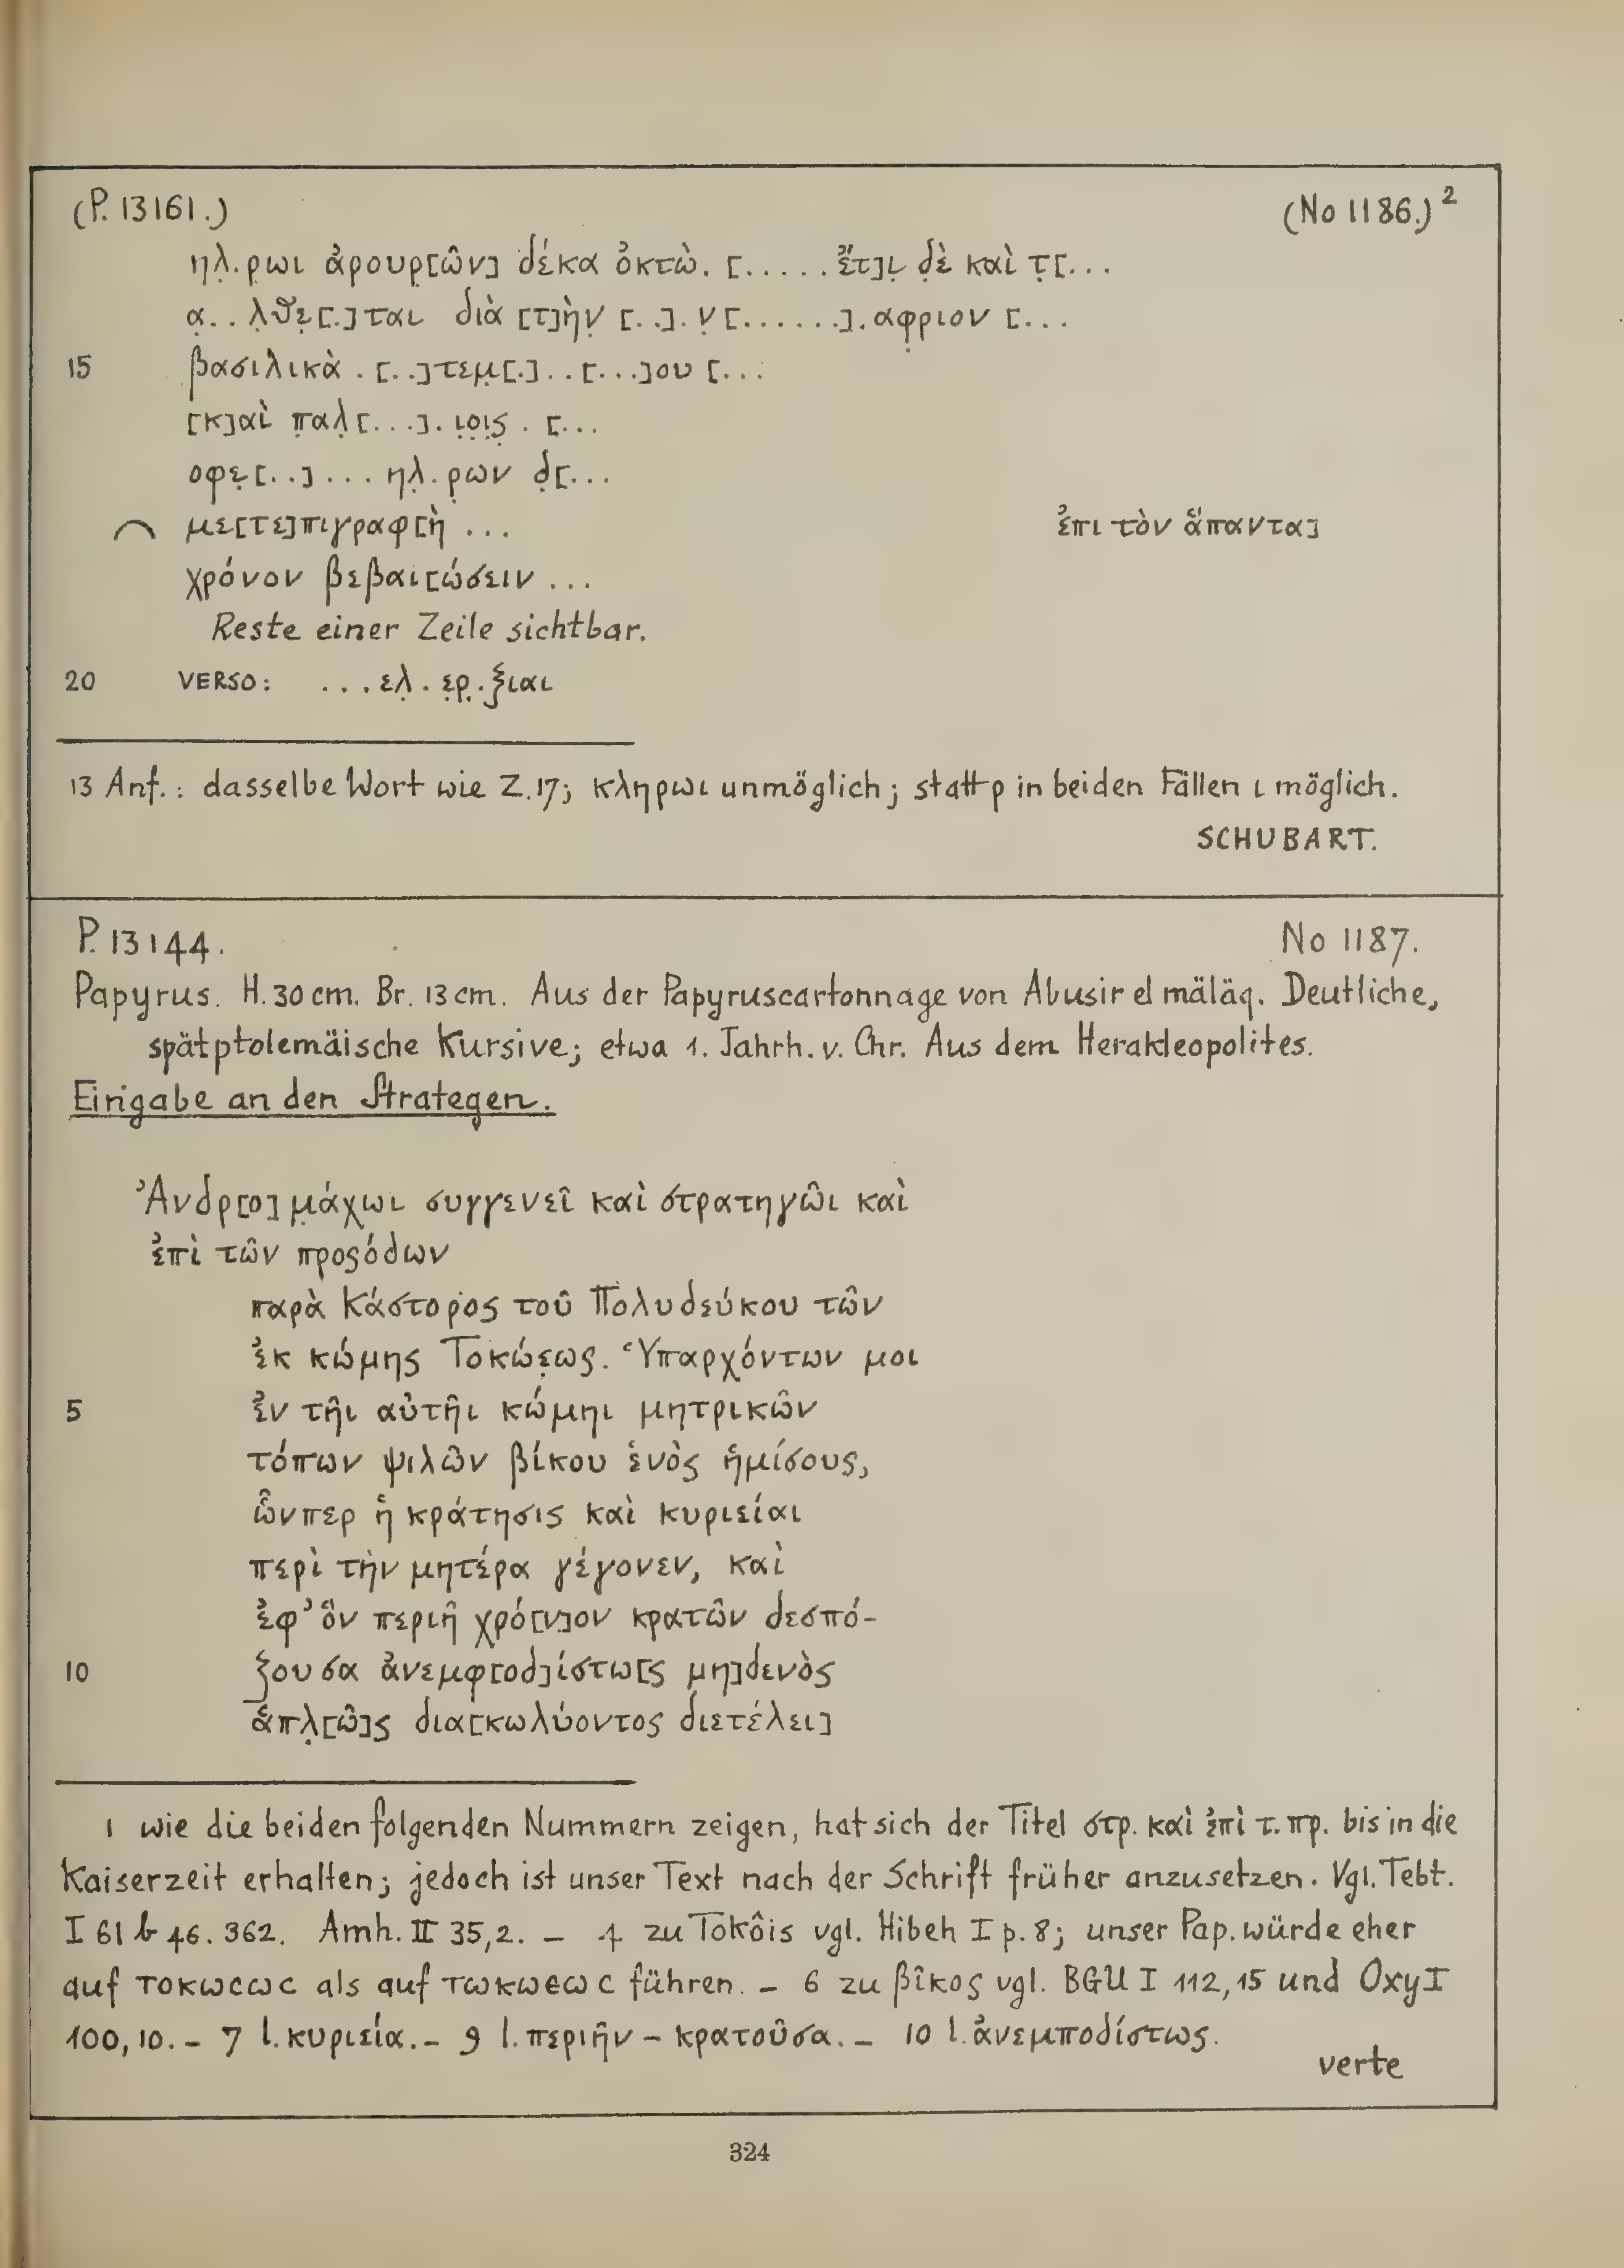 (P. 13161.) (No 1186.)²
ηλ̣.ρ̣ωι ἀρουρ̣[ῶν] δέκα ὀκτὼ. [.....ἔτ]ι̣ δ̣ὲ καὶ τ̣[...
α̣..λ̣θε̣[.]ται διὰ [τ]ὴν̣ [..].ν̣[......].αφ̣ριον [...
15 βασιλικὰ.[..]τεμ̣[.]..[...]ου [...
[κ]αὶ π̣αλ̣[...].ι̣ο̣ι̣ς̣.[...
οφε̣[..]...ηλ̣.ρ̣ων δ̣[...
⌒ με[τε]πιγραφ[ὴ ... ἐπι τὸν ἅπαντα]
χρόνον βεβαι[ώσειν ...
Reste einer Zeile sichtbar.
20 VERSO: ...ελ̣.ε̣ρ̣.ξιαι
13 Anf.: dasselbe Wort wie Z.17; κληρωι unmöglich; statt ρ in beiden Fällen ι möglich.
SCHUBART.
P. 13144. No 1187.
Papyrus. H. 30 cm. Br. 13 cm. Aus der Papyruscartonnage von Abusir el mäläq. Deutliche,
spätptolemäische Kursive; etwa 1. Jahrh. v. Chr. Aus dem Herakleopolites.
Eingabe an den Strategen.
Ἀνδρ[ο]μ̣άχωι συγγενεῖ καὶ στρατηγῶι καὶ
ἐπὶ τῶν προςόδων
παρὰ Κάστορος τοῦ Πολυδεύκου τῶν
ἐκ κώμης Τοκώε̣ως. Ὑπαρχόντων μοι
5 ἐν τῆι αὐτῆι κώμηι μητρικῶν
τόπων ψιλῶν βίκου ἑνὸς ἡμίσους,
ὧνπερ ἡ κράτησις καὶ κυριείαι
περὶ τὴν μητέρα γέγονεν, καὶ
ἐφ’ ὃν περιῆ χρό[ν]ον κρατῶν δεσπό-
10 ζουσα ἀνεμφ[οδ]ίστω[ς μη]δενὸς
ἁπλ̣[ῶ]ς δια[κωλύοντος διετέλει]
1 wie die beiden folgenden Nummern zeigen, hat sich der Titel στρ. καὶ ἐπὶ τ. πρ. bis in die
Kaiserzeit erhalten; jedoch ist unser Text nach der Schrift früher anzusetzen. Vgl. Tebt.
I 61 b 46. 362. Amh. II 35,2. – 4 zu Tokôis vgl. Hibeh I p. 8; unser Pap. würde eher
auf τοκωϲωϲ als auf τωκωεωϲ führen. – 6 zu βῖκος vgl. BGU I 112,15 und Oxy I
100,10. – 7 l. κυριεία. – 9 l. περιῆν – κρατοῦσα. – 10 l. ἀνεμποδίστως.
verte
324